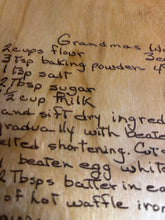 Grandmas
2 cups flour
3 tsp baking powder
1 tsp salt
2 Tbsp sugar
1/2 cup milk
and sift dry ingred
gradually with beate
elted shortening.
beaten egg white
2 Tbsps batter in e
of hot waffle iron